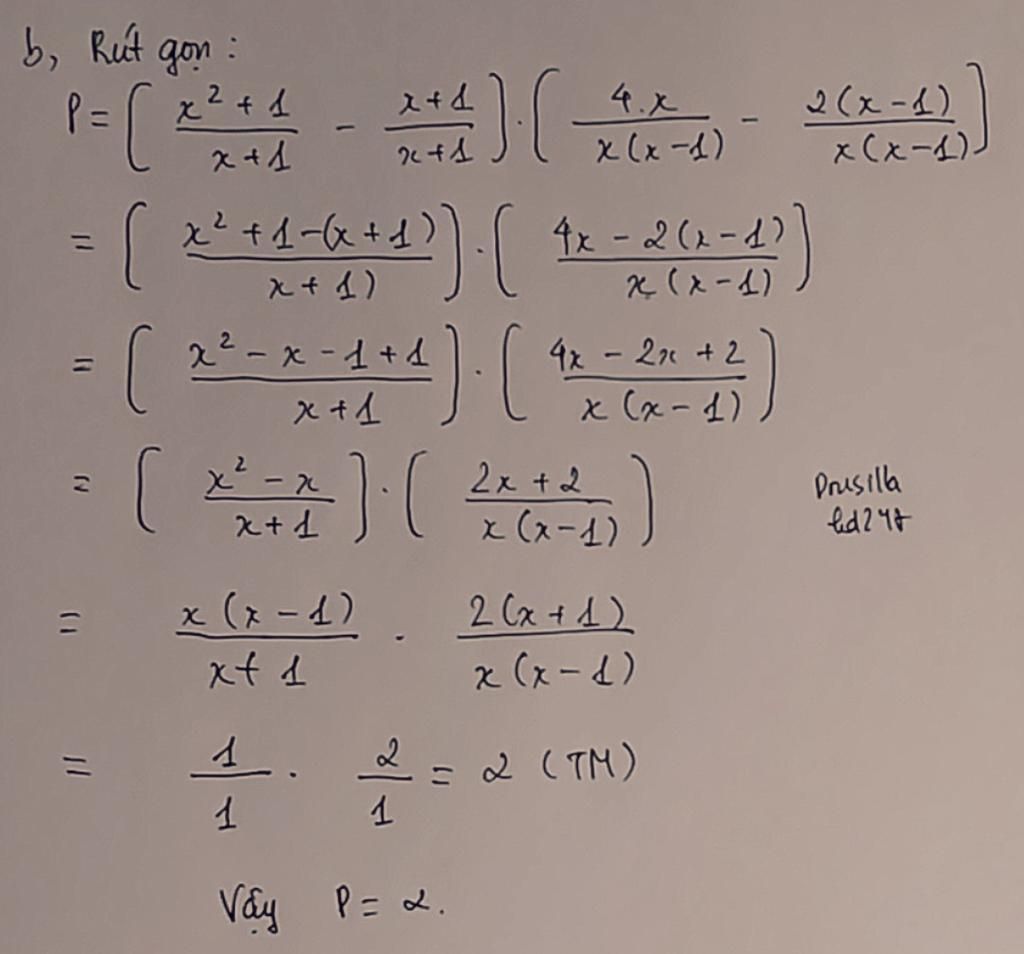 b, Rút gọn :
P = ( x² + 1 / x + 1 - x + 1 / x + 1 ) . ( 4.x / x(x - 1) - 2(x - 1) / x(x - 1) )
= ( x² + 1 - (x + 1) / x + 1) ) . ( 4x - 2(x - 1) / x(x - 1) )
= ( x² - x - 1 + 1 / x + 1 ) . ( 4x - 2x + 2 / x(x - 1) )
= ( x² - x / x + 1 ) . ( 2x + 2 / x(x - 1) )
Drusilla
= x(x - 1) / x + 1 . 2(x + 1) / x(x - 1)
= 1 / 1 . 2 / 1 = 2 (TM)
Vậy P = 2.